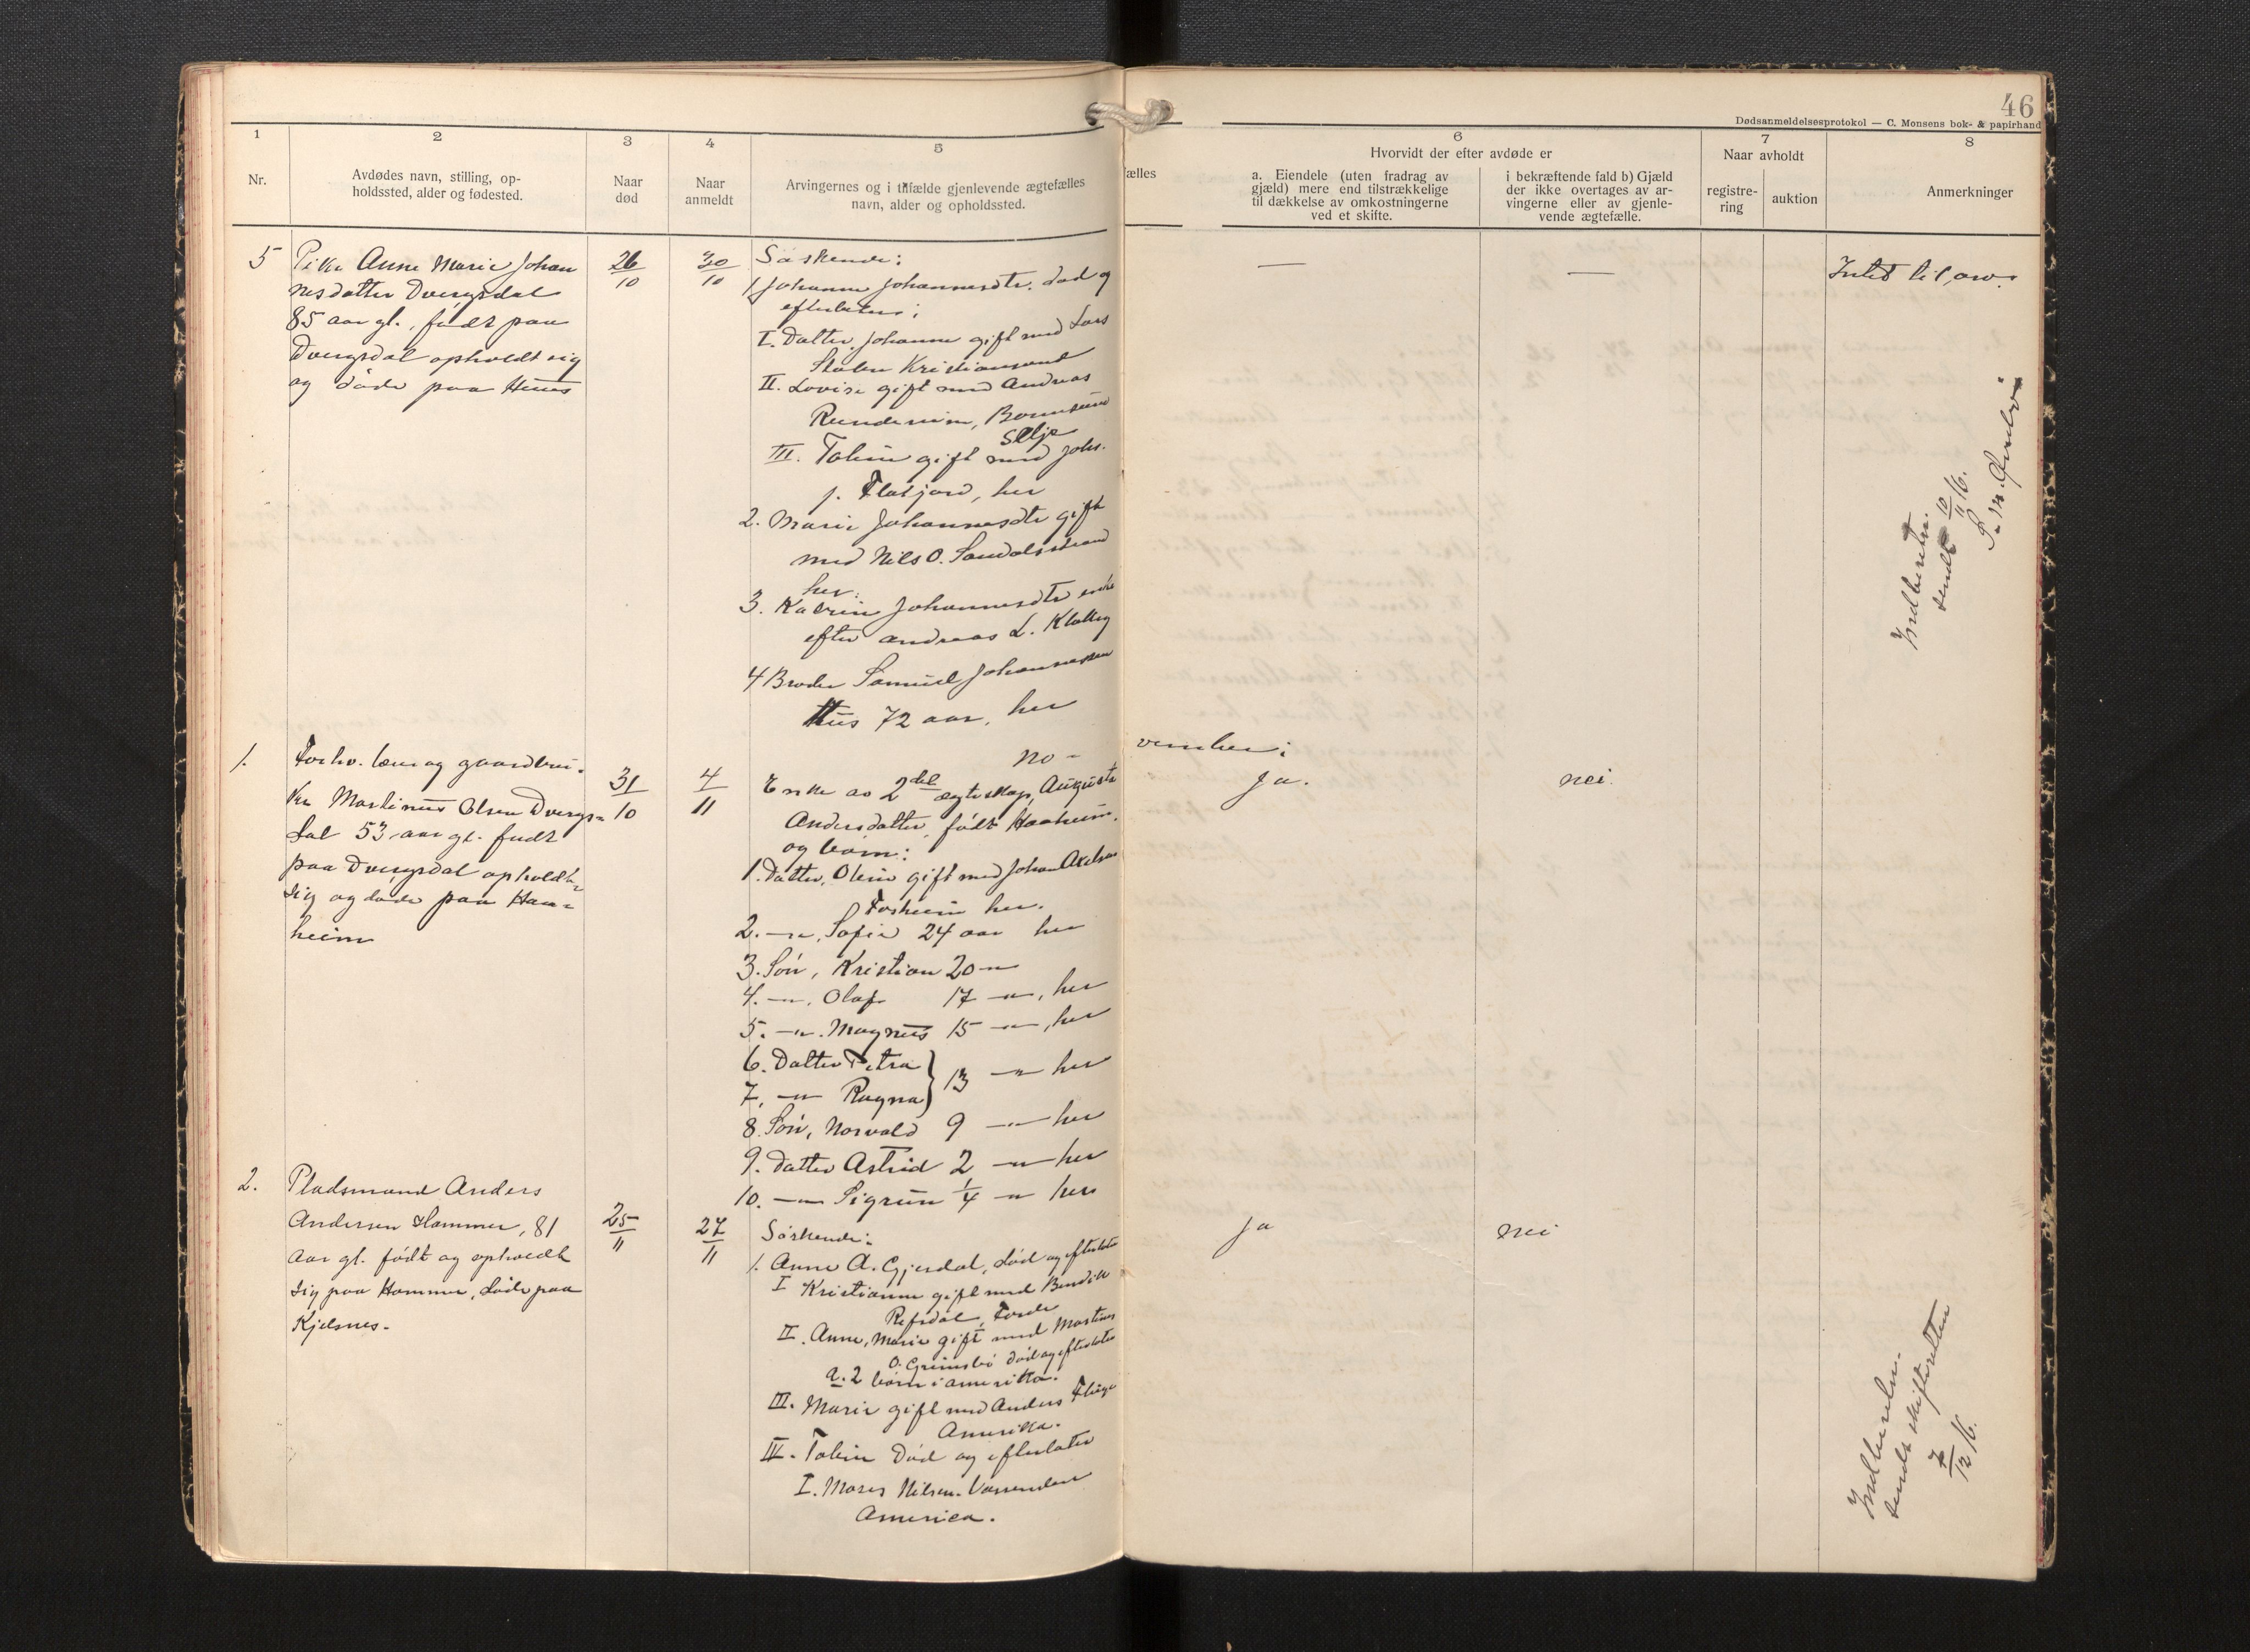 46
Dødsanmeldelsesprotokol — C. Monsens bok- & papirhand
1
2
3
4
5
6
7
8
Nr.
Avdødes navn, stilling, op-
holdssted, alder og fødested.
Naar
død
Naar
anmeldt
Arvingernes og i tilfælde gjenlevende ægtefælles
navn, alder og opholdssted.
ælles
Hvorvidt der efter avdøde er
a. Eiendele (uten fradrag av
gjæld) mere end tilstrækkelige
til dækkelse av omkostningerne
ved et skifte.
i bekræftende fald b) Gjæld
der ikke overtages av ar-
vingerne eller av gjenle-
vende ægtefælle.
Naar avholdt
registre-
ring
auktion
Anmerkninger
5
Pike Anne Marie Johan
nesdatter Dvergsdal
85 aar gl., født paa
Dvergsdal opholdt sig
og døde paa Huus
26/10
30/10
Søskende:
1. Johanne Johannesdtr. død og
efterlater:
I. Datter, Johanne gift med Lars
Stølen Kristiansund
II. Lovise gift med Andreas
Rundereim,
Selje
III. Taline gift med Johs.
J. Flatjord, her
2. Marie Johannesdtr gift
med Nils O. Sandalsstrand
her.
3. Katrine Johannesdtr enke
efter Andreas L. Klakeg
4 Broder Samuel Johannessen
Huus 72 aar, her
—
—
Intet til arv.
Indberetn.
sendt 10/11 16.
No-
vember:
1.
Forhv. lærer og gaardbru-
ker Martinus Olsen Dvergs-
dal 53 aar gl. født
paa Dvergsdal opholdt
sig og døde paa Haa-
heim
31/10
4/11
Enke av 2det ægteskap, Augusta
Andersdatter, født Haaheim,
og børn:
1. Datter, Oline gift med Johan Axelsen
Fosheim her.
2. —"—, Sofie 24 aar her
3. Søn, Kristian 20 —"—
4. —"—, Olaf 17 —"—, her
5. —"—. Magnus 15 —"—, her
6. Datter Petra } 13 —"— her
7. —"— Ragna
8. Søn, Norvald 9 —"— her
9. Datter Astrid 2 —"— her
10. —"— Sigrun 1/4 —"— her
Ja.
nei.
2.
Pladsmand Anders
Andersen Hammer, 81
aar gl. født og opholdt
sig paa Hammer, døde paa
Kjelsnes.
25/11
27/11
Søskende:
1. Anne A. Gjesdal, død og efterlater
I Kristianne gift med Bendik
Refsdal, Førde
II. Anne, Marie gift med Martinus
O. Grimsbø død og efterlater
a. 2 børn i Amerikka.
III. Marie gift med Anders Fluge
Amerikka.
IV. Taline død og efterlater
I. Moses Nilsen Vassenden
America.
Ja
nei
Indberetn.
sendt skifteretten
7/12 16.